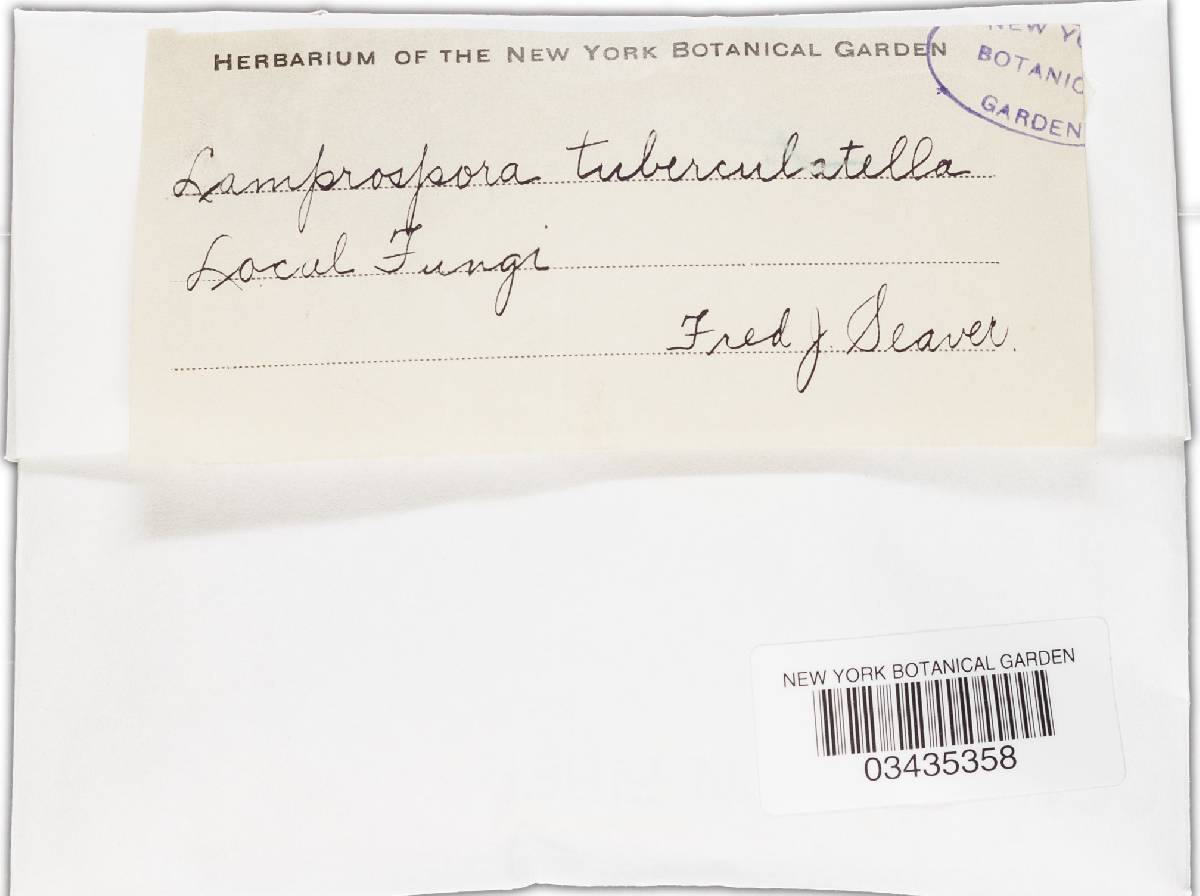 HERBARIUM OF THE NEW YORK BOTANICAL GARDEN
NEW Y
BOTANIC
GARDEN
Lamprospora tuberculatella
Local Fungi
Fred J Seaver.
NEW YORK BOTANICAL GARDEN
03435358